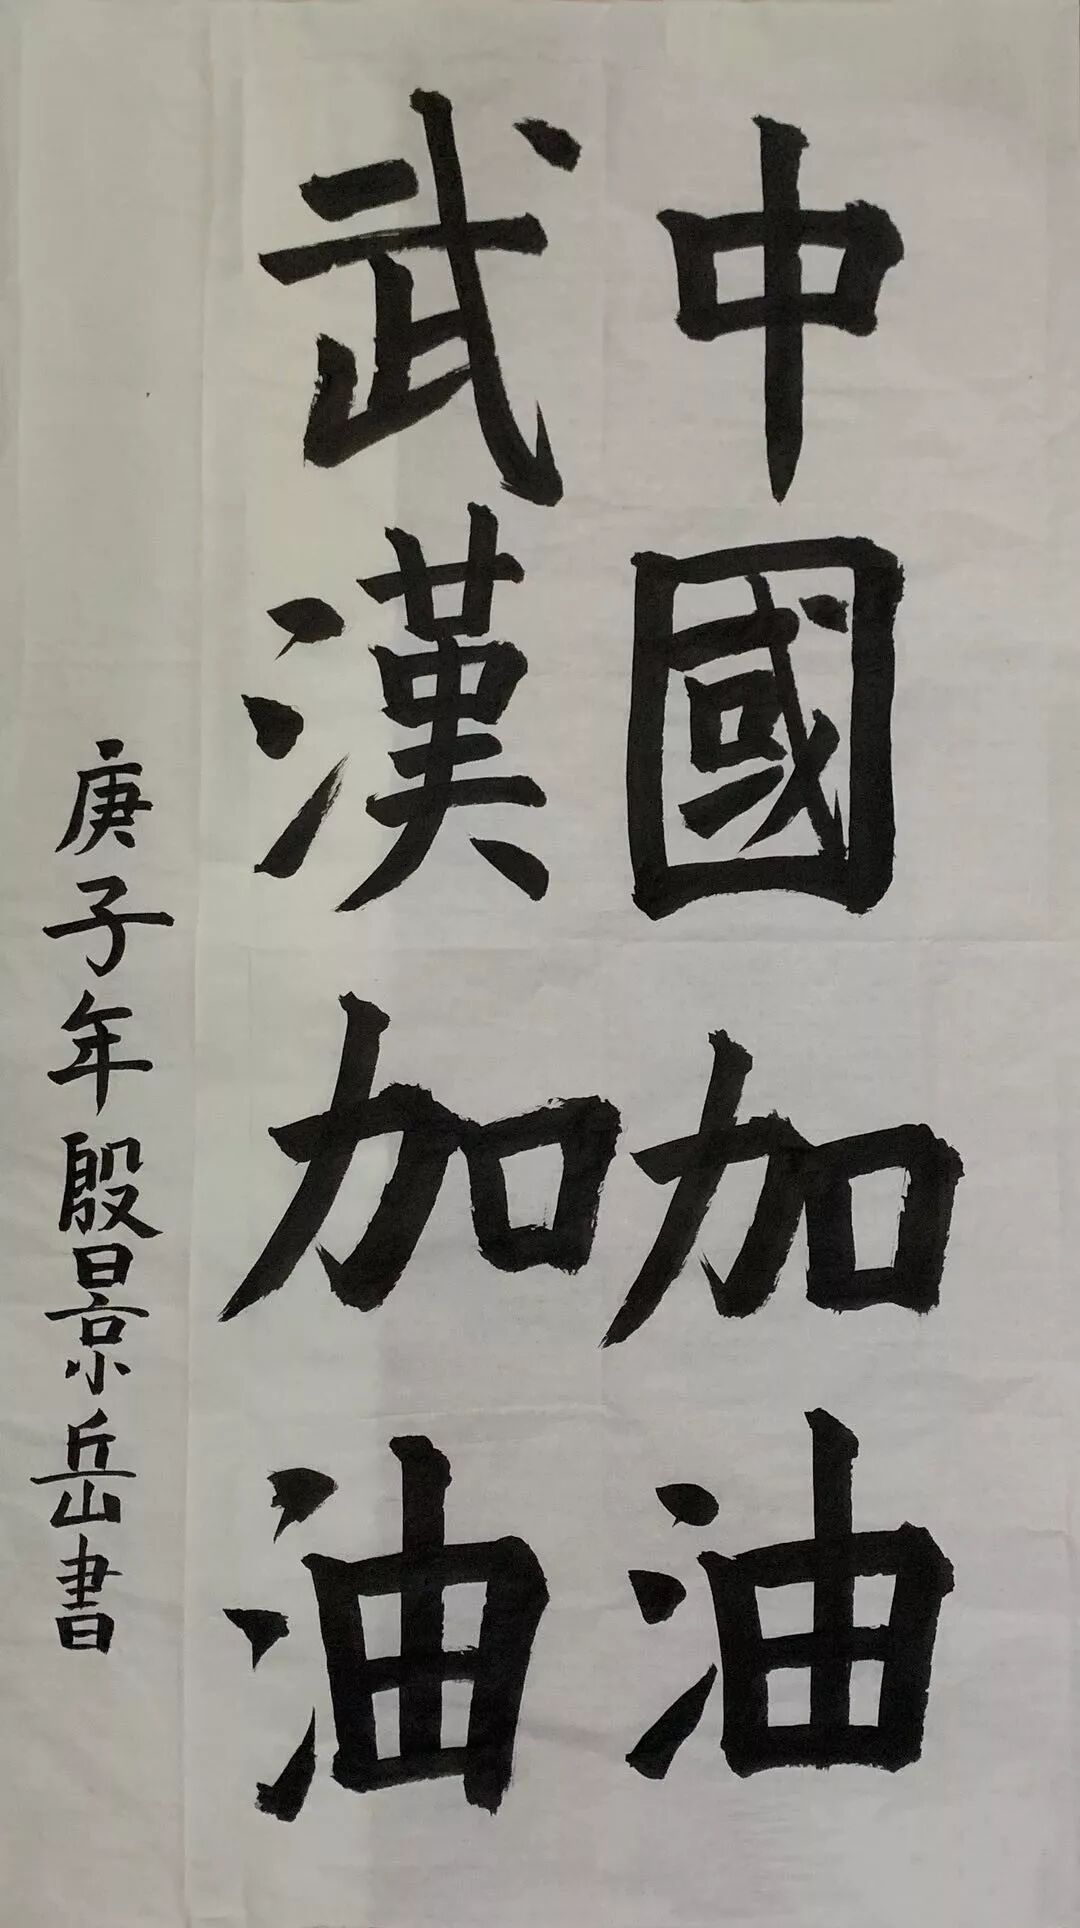 中國加油
武漢加油
庚子年殷景岳書